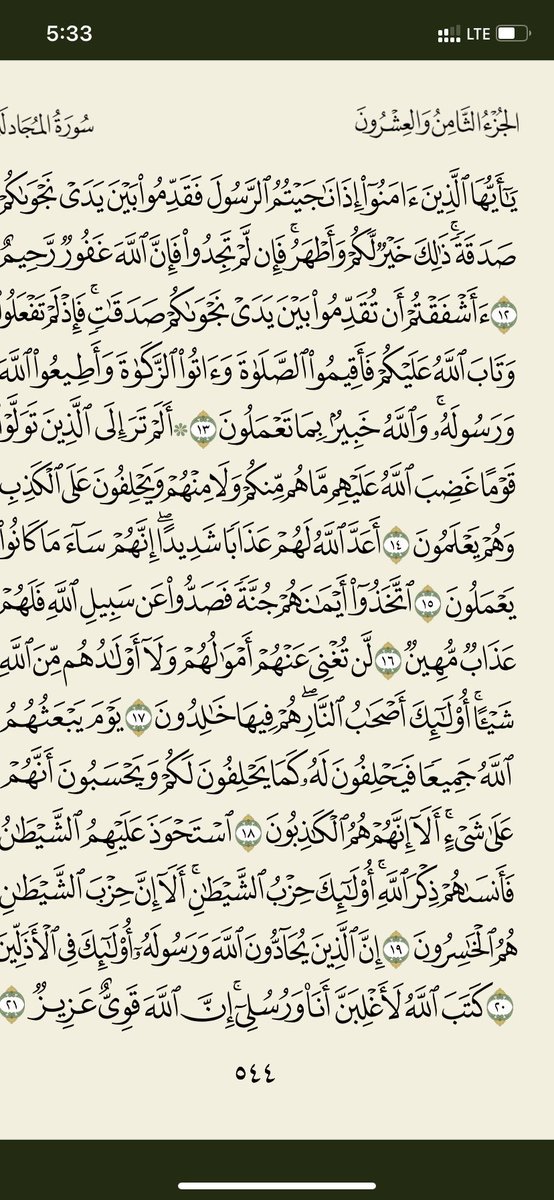 5:33 LTE
الجُزْءُ الثَّامِنُ وَالعِشْرُونَ سُورَةُ المُجَادلَة
يَٰٓأَيُّهَا ٱلَّذِينَ ءَامَنُوٓا۟ إِذَا نَٰجَيْتُمُ ٱلرَّسُولَ فَقَدِّمُوا۟ بَيْنَ يَدَىْ نَجْوَىٰكُمْ
صَدَقَةً ۚ ذَٰلِكَ خَيْرٌ لَّكُمْ وَأَطْهَرُ ۚ فَإِن لَّمْ تَجِدُوا۟ فَإِنَّ ٱللَّهَ غَفُورٌ رَّحِيمٌ
١٢ ءَأَشْفَقْتُمْ أَن تُقَدِّمُوا۟ بَيْنَ يَدَىْ نَجْوَىٰكُمْ صَدَقَٰتٍ ۚ فَإِذْ لَمْ تَفْعَلُوا۟
وَتَابَ ٱللَّهُ عَلَيْكُمْ فَأَقِيمُوا۟ ٱلصَّلَوٰةَ وَءَاتُوا۟ ٱلزَّكَوٰةَ وَأَطِيعُوا۟ ٱللَّهَ
وَرَسُولَهُۥ ۚ وَٱللَّهُ خَبِيرٌۢ بِمَا تَعْمَلُونَ ١٣ ۞ أَلَمْ تَرَ إِلَى ٱلَّذِينَ تَوَلَّوْا۟
قَوْمًا غَضِبَ ٱللَّهُ عَلَيْهِم مَّا هُم مِّنكُمْ وَلَا مِنْهُمْ وَيَحْلِفُونَ عَلَى ٱلْكَذِبِ
وَهُمْ يَعْلَمُونَ ١٤ أَعَدَّ ٱللَّهُ لَهُمْ عَذَابًا شَدِيدًا ۖ إِنَّهُمْ سَآءَ مَا كَانُوا۟
يَعْمَلُونَ ١٥ ٱتَّخَذُوٓا۟ أَيْمَٰنَهُمْ جُنَّةً فَصَدُّوا۟ عَن سَبِيلِ ٱللَّهِ فَلَهُمْ
عَذَابٌ مُّهِينٌ ١٦ لَّن تُغْنِىَ عَنْهُمْ أَمْوَٰلُهُمْ وَلَآ أَوْلَٰدُهُم مِّنَ ٱللَّهِ
شَيْـًٔا ۚ أُو۟لَٰٓئِكَ أَصْحَٰبُ ٱلنَّارِ ۖ هُمْ فِيهَا خَٰلِدُونَ ١٧ يَوْمَ يَبْعَثُهُمُ
ٱللَّهُ جَمِيعًا فَيَحْلِفُونَ لَهُۥ كَمَا يَحْلِفُونَ لَكُمْ وَيَحْسَبُونَ أَنَّهُمْ
عَلَىٰ شَىْءٍ ۚ أَلَآ إِنَّهُمْ هُمُ ٱلْكَٰذِبُونَ ١٨ ٱسْتَحْوَذَ عَلَيْهِمُ ٱلشَّيْطَٰنُ
فَأَنسَىٰهُمْ ذِكْرَ ٱللَّهِ ۚ أُو۟لَٰٓئِكَ حِزْبُ ٱلشَّيْطَٰنِ ۚ أَلَآ إِنَّ حِزْبَ ٱلشَّيْطَٰنِ
هُمُ ٱلْخَٰسِرُونَ ١٩ إِنَّ ٱلَّذِينَ يُحَآدُّونَ ٱللَّهَ وَرَسُولَهُۥٓ أُو۟لَٰٓئِكَ فِى ٱلْأَذَلِّينَ
٢٠ كَتَبَ ٱللَّهُ لَأَغْلِبَنَّ أَنَا۠ وَرُسُلِىٓ ۚ إِنَّ ٱللَّهَ قَوِىٌّ عَزِيزٌ ٢١
٥٤٤